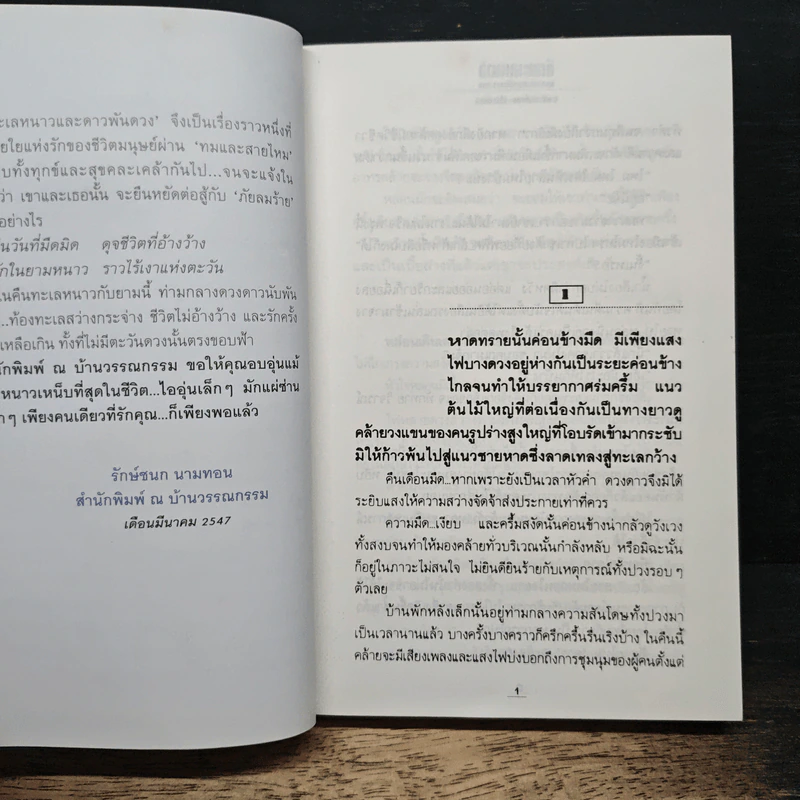 ะเลหนาวและดาวพันดวง’ จึงเป็นเรื่องราวหนึ่งที่
ยใยแห่งรักของชีวิตมนุษย์ผ่าน ‘ทมและสายไหม’
บทั้งทุกข์และสุขคละเคล้ากันไป...จนจะแจ้งใน
ว่า เขาและเธอนั้น จะยืนหยัดต่อสู้กับ ‘ภัยลมร้าย’
อย่างไร
นวันที่มืดมิด ดุจชีวิตที่อ้างว้าง
ักในยามหนาว ราวไร้เงาแห่งตะวัน
นคืนทะเลหนาวกับยามนี้ ท่ามกลางดวงดาวนับพัน
...ท้องทะเลสว่างกระจ่าง ชีวิตไม่อ้างว้าง และรักครั้ง
เหลือเกิน ทั้งที่ไม่มีตะวันดวงนั้นตรงขอบฟ้า
นักพิมพ์ ณ บ้านวรรณกรรม ขอให้คุณอบอุ่นแม้
หนาวเหน็บที่สุดในชีวิต...ไออุ่นเล็กๆ มักแผ่ซ่าน
ๆ เพียงคนเดียวที่รักคุณ...ก็เพียงพอแล้ว
รักษ์ชนก นามทอน
สำนักพิมพ์ ณ บ้านวรรณกรรม
เดือนมีนาคม 2547
1
หาดทรายนั้นค่อนข้างมืด มีเพียงแสง
ไฟบางดวงอยู่ห่างกันเป็นระยะค่อนข้าง
ไกลจนทำให้บรรยากาศร่มครึ้ม แนว
ต้นไม้ใหญ่ที่ต่อเนื่องกันเป็นทางยาวดู
คล้ายวงแขนของคนรูปร่างสูงใหญ่ที่โอบรัดเข้ามากระชับ
มิให้ก้าวพ้นไปสู่แนวชายหาดซึ่งลาดเทลงสู่ทะเลกว้าง
คืนเดือนมืด...หากเพราะยังเป็นเวลาหัวค่ำ ดวงดาวจึงมิได้
ระยิบแสงให้ความสว่างจัดจ้าส่งประกายเท่าที่ควร
ความมืด...เงียบ และครึ้มสงัดนั้นค่อนข้างน่ากลัวดูวังเวง
ทั้งสงบจนทำให้มองคล้ายทั่วบริเวณนั้นกำลังหลับ หรือมิฉะนั้น
ก็อยู่ในภาวะไม่สนใจ ไม่ยินดียินร้ายกับเหตุการณ์ทั้งปวงรอบๆ
ตัวเลย
บ้านพักหลังเล็กนั้นอยู่ท่ามกลางความสันโดษทั้งปวงมา
เป็นเวลานานแล้ว บางครั้งบางคราวก็ครึกครื้นรื่นเริงบ้าง ในคืนนี้
คล้ายจะมีเสียงเพลงและแสงไฟบ่งบอกถึงการชุมนุมของผู้คนตั้งแต่
1